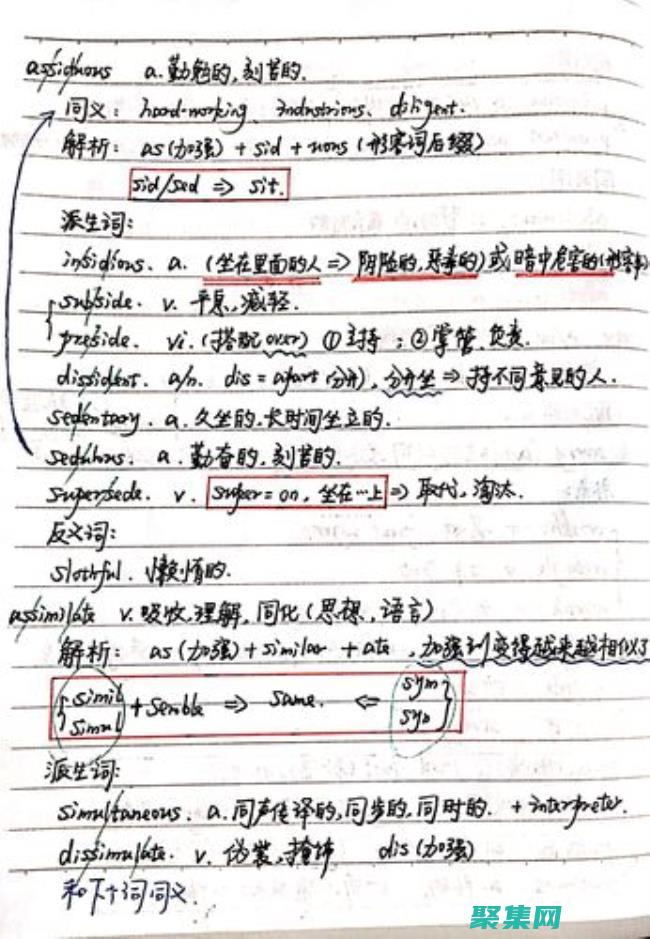 assiduous a. 勤勉的,刻苦的.
同义: hard-working industrious、diligent.
解析: as(加强) + sid + uous (形容词后缀)
sid/sed ⇒ sit.
派生词:
insidious. a. (坐在里面的人 ⇒ 阴险的,恶毒的) 或 暗中危害的(形容事)
subside. v. 平息,减轻.
preside. vi. (搭配over) ①主持 ; ②掌管,负责.
dissident. a/n. dis = apart (分开), 分开坐 ⇒ 持不同意见的人.
sedentary. a. 久坐的,长时间坐立的.
sedulous. a. 勤奋的,刻苦的.
supersede. v. super = on, 坐在…上 ⇒ 取代,淘汰.
反义词:
slothful. 懒惰的.
assimilate v. 吸收,理解,同化(思想,语言)
解析: as(加强) + similar + ate ,加强到变得越来越相似了
{simil simul + semble ⇒ same. ⇐ sym syn}
派生词:
simultaneous. a. 同声传译的,同步的,同时的. + interpreter.
dissimulate. v. 伪装,掩饰 dis(加强)
和下个词同义.
聚集网